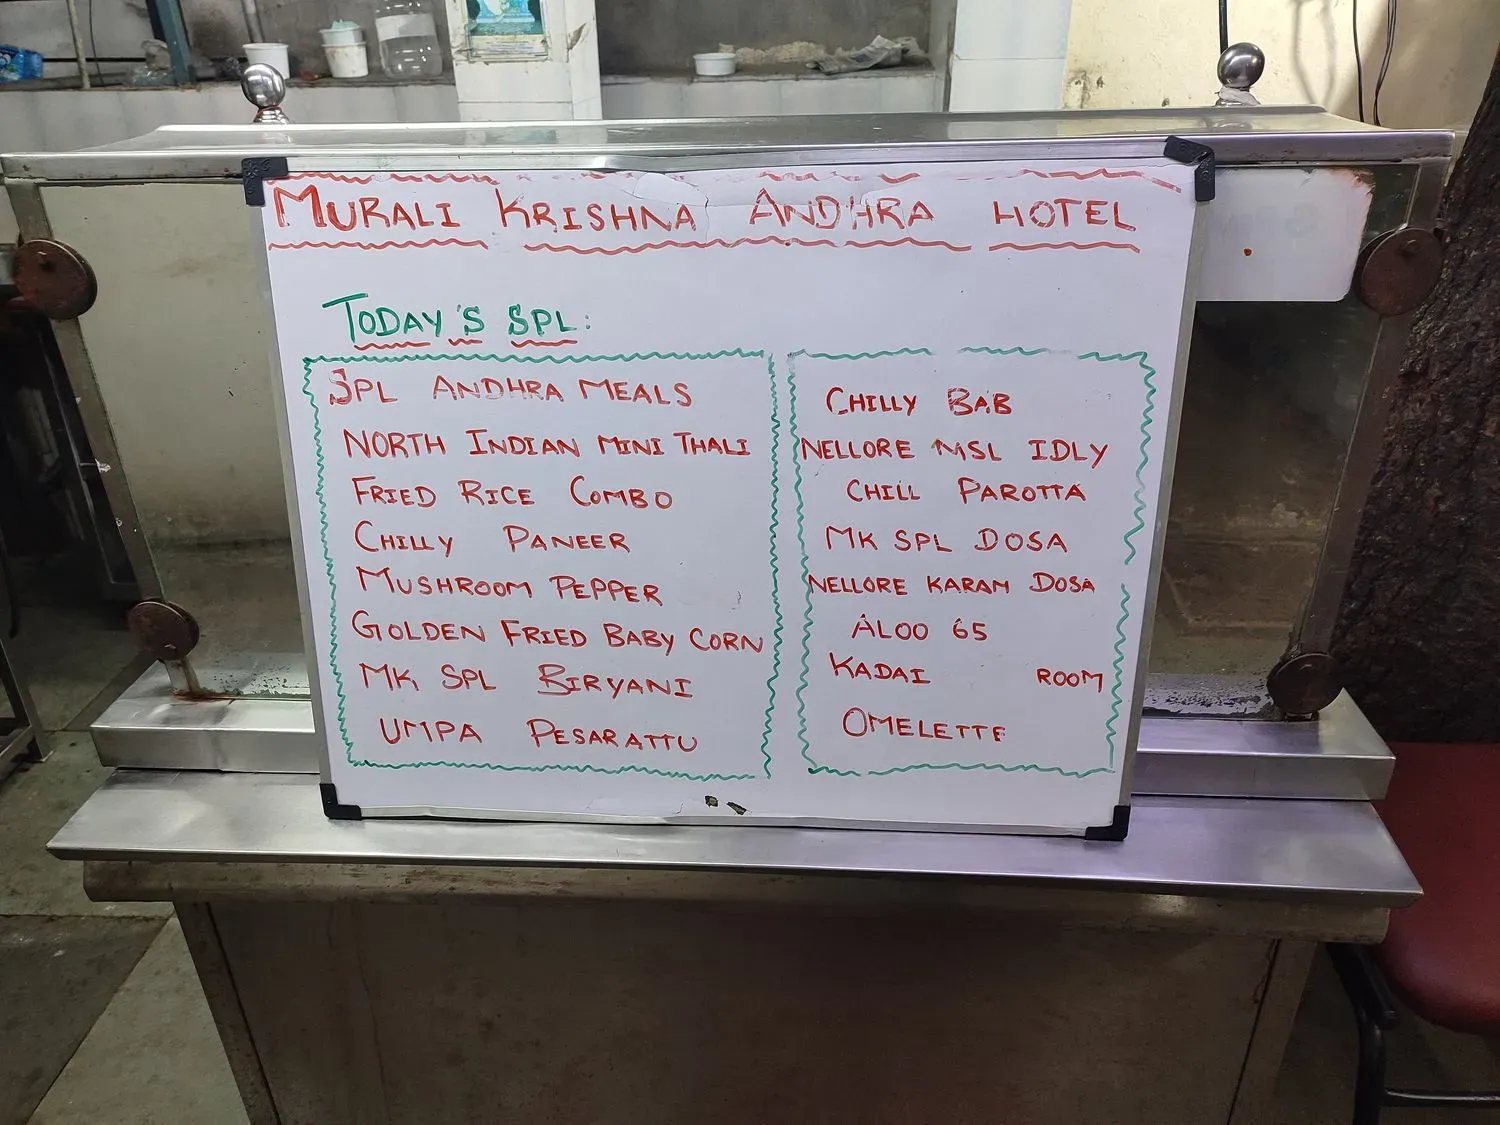 MURALI KRISHNA ANDHRA HOTEL
TODAY'S SPL:
SPL ANDHRA MEALS
NORTH INDIAN MINI THALI
FRIED RICE COMBO
CHILLY PANEER
MUSHROOM PEPPER
GOLDEN FRIED BABY CORN
MK SPL BIRYANI
UMPA PESARATTU
CHILLY BAB
NELLORE MSL IDLY
CHILL PAROTTA
MK SPL DOSA
NELLORE KARAM DOSA
ALOO 65
KADAI ROOM
OMELETTE